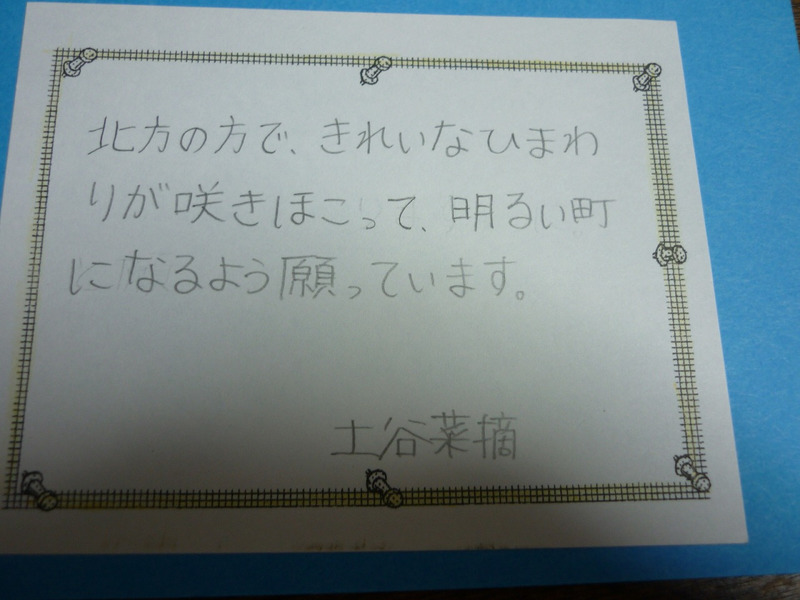 北方の方で、きれいなひまわ
りが咲きほこって、明るい町
になるよう願っています。
土谷菜摘